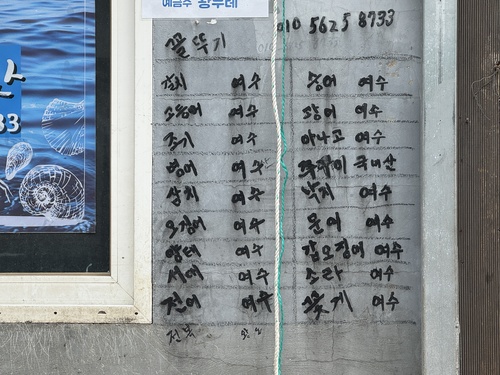 예금주 황두례
010 5625 8733
꼴뚜기
갈치 여수 숭어 여수
고등어 여수 장어 여수
조기 여수 아나고 여수
병어 여수 쭈꾸미 국내산
삼치 여수 낙지 여수
오징어 여수 문어 여수
양태 여수 갑오징어 여수
서대 여수 소라 여수
전어 여수 꽃게 여수
전복
33